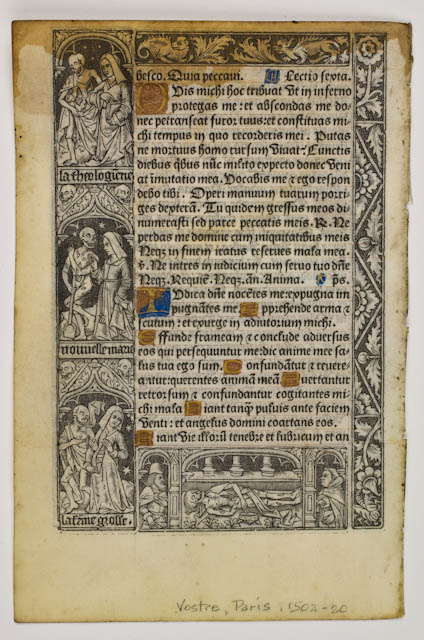 besco. Quia peccavi. Lectio sexta.
Quis michi hoc tribuat vt in inferno
protegas me: et abscondas me do-
nec pertranseat furor tuus: et constituas mi-
chi tempus in quo recorderis mei. Putas
ne mortuus homo rursum viuat: Cunctis
diebus qb̃us nũc milito expecto donec veni
at imutatio mea. Vocabis me et ego respon
debo tibi. Operi manuum tuarum porri-
ges dexterã. Tu quidem gressus meos di-
numerasti sed parce peccatis meis. R. Ne
perdas me domine cum iniquitatibus meis
Neqz in finem iratus reserues mala mea.
v. Ne intres in iudicium cum seruo tuo dñe
Neqz. Requiẽ. Neqz. añ. Anima. ps.
Judica dñe nocẽtes me: expugna im
pugnãtes me. Apprehende arma et
scutum: et exurge in adiutorium michi.
Effunde frameam et conclude aduersus
eos qui persequuntur me: dic anime mee sa-
lus tua ego sum. Confundãtur et reuere-
antur: querentes animã meã. Auertantur
retrorsum et confundantur cogitantes mi-
chi mala. Fiant tanqz puluis ante faciem
venti: et angelus domini coartans eos.
Fiant vie illorũ tenebre et lubricum et an
la theologiene
nouuelle mariee
la fẽme grosse.
Vostre, Paris, 1502-20